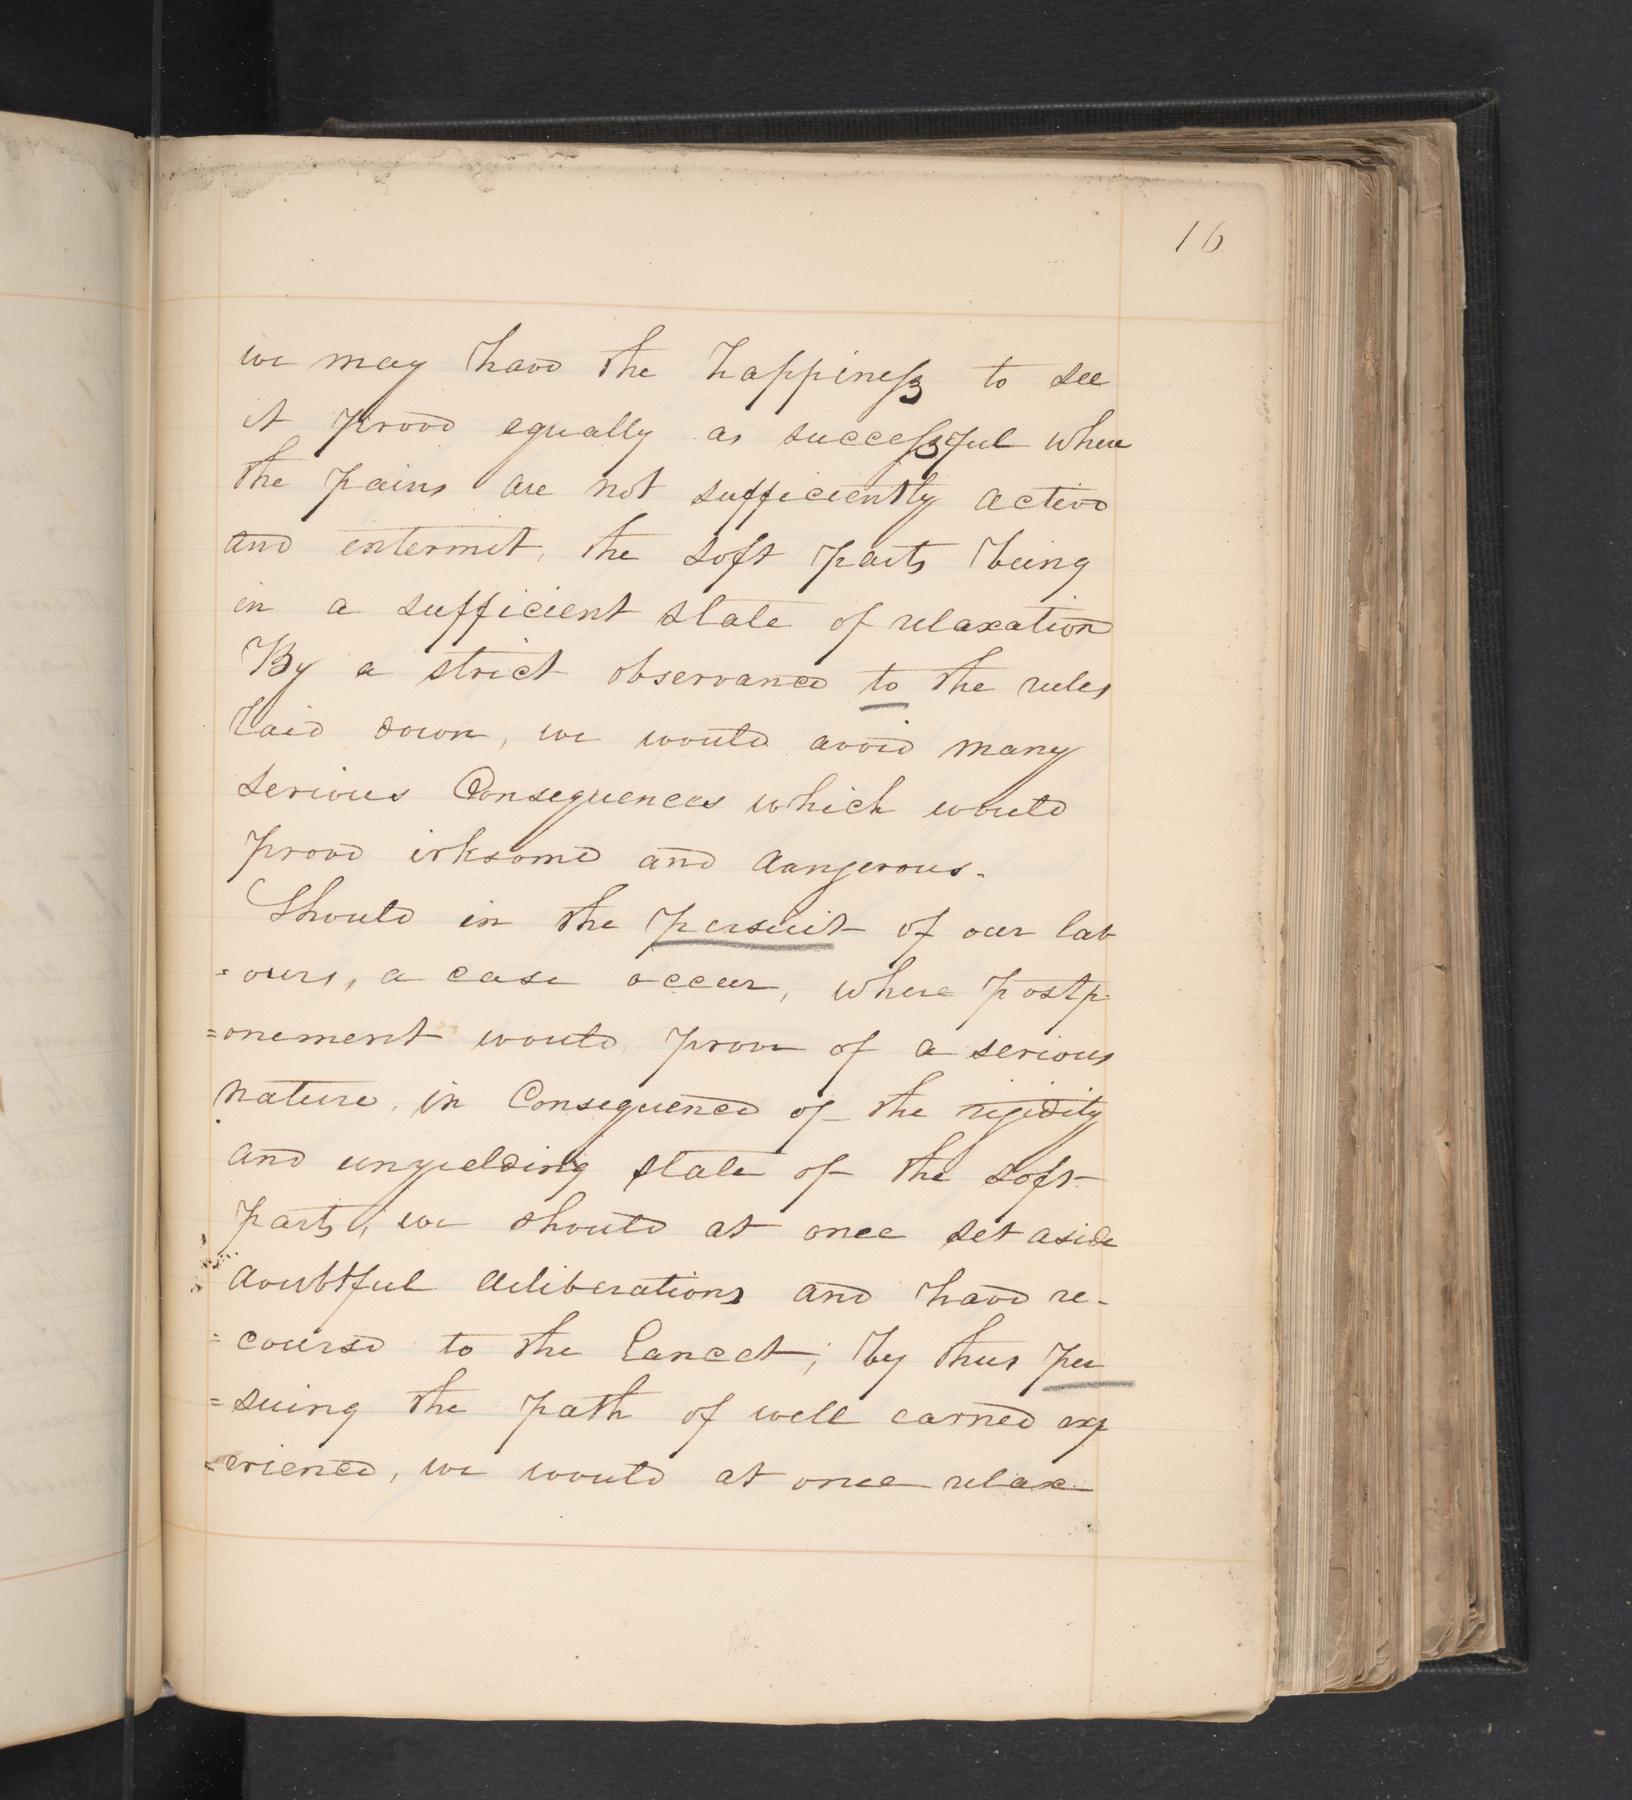 16
we may have the happiness to see
it prove equally as successful where
the pains are not sufficiently active
and intermit, the soft parts being
in a sufficient state of relaxation
By a strict observance to the rules
laid down, we would avoid many
serious Consequences which would
prove irksome and dangerous.
Should in the persuit of our lab
=ours, a case occur, where postp
=onement would prove of a serious
nature, in Consequence of the rigidity
and unyielding state of the soft
parts, we should at once set aside
doubtful deliberations and have re-
=course to the Lancet; by thus per
=suing the path of well earned exp
=erience, we would at once relax